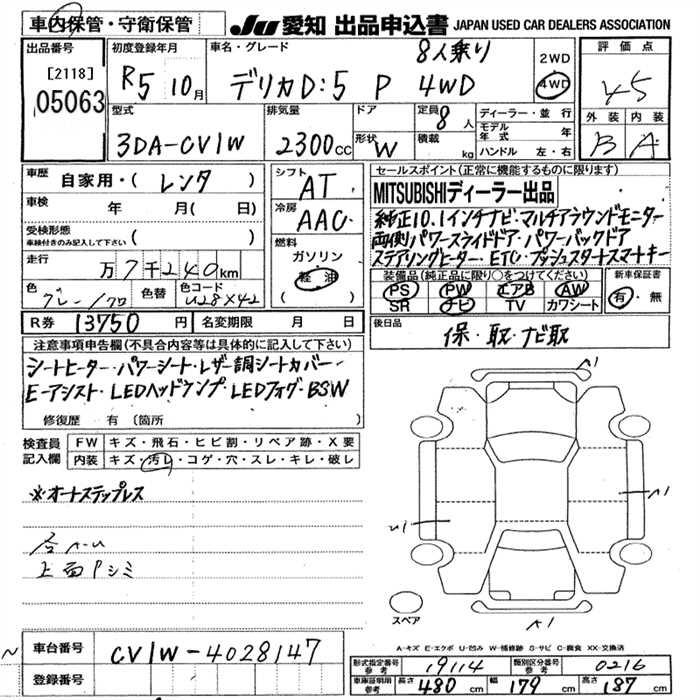 車内保管・守衛保管 JU 愛知 出品申込書 JAPAN USED CAR DEALERS ASSOCIATION
出品番号 初度登録年月 車名・グレード 8人乗り 2WD 評価点
[2118] R5 10月 デリカD:5 P 4WD 4WD 4.5
05063 型式 排気量 ドア 定員 8人 ディーラー・並行 外装 内装
モデル年式 年
3DA-CV1W 2300cc 形状 W 積載 kg ハンドル 左・右 B A
車歴 自家用・(レンタ) シフト AT セールスポイント(正常に機能するものに限ります)
MITSUBISHIディーラー出品
車検 年 月( 日) 冷房 AAC 純正10.1インチナビ・マルチアラウンドモニター
受検形態 ( ) 両側パワースライドドア・パワーバックドア
車検付きのみ記入して下さい 燃料 ステアリングヒーター・ETC・プッシュスタートスマートキー
走行 万7千240km ガソリン 装備品(純正品に限り○をつけてください) 新車保証書
軽油 PS PW エアB AW 有・無
色 グレー/クロ 色替 色コード U28X42 SR ナビ TV カワシート
R券 13750円 名変期限 月 日 後日品 保・取・ナビ取
注意事項申告欄(不具合内容等は具体的に記入して下さい)
シートヒーター・パワーシート・レザー調シートカバー・
E-アシスト・LEDヘッドランプ・LEDフォグ・BSW
修復歴 有 (箇所 )
検査員 FW キズ・飛石・ヒビ割・リペア跡・X要
記入欄 内装 キズ・汚レ・コゲ・穴・スレ・キレ・破レ
※オートステップレス
A1
A1
U1
上面Pシミ
スペア
A1
A-キズ E-エクボ U-凹み W-補修跡 S-サビ C-腐食 XX-交換済
車台番号 CV1W-4028147
登録番号
型式指定番号 参考 19114 類別区分番号 参考 0216
車庫証明用 参考 長さ 480cm 幅 179cm 高さ 187cm